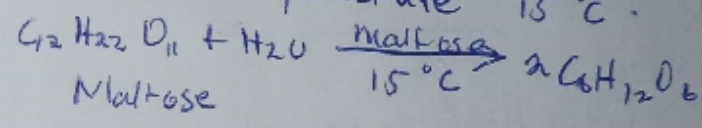 15 °C.
C12 H22 O11 + H2O maltose 15°C 2 C6H12O6
Maltose